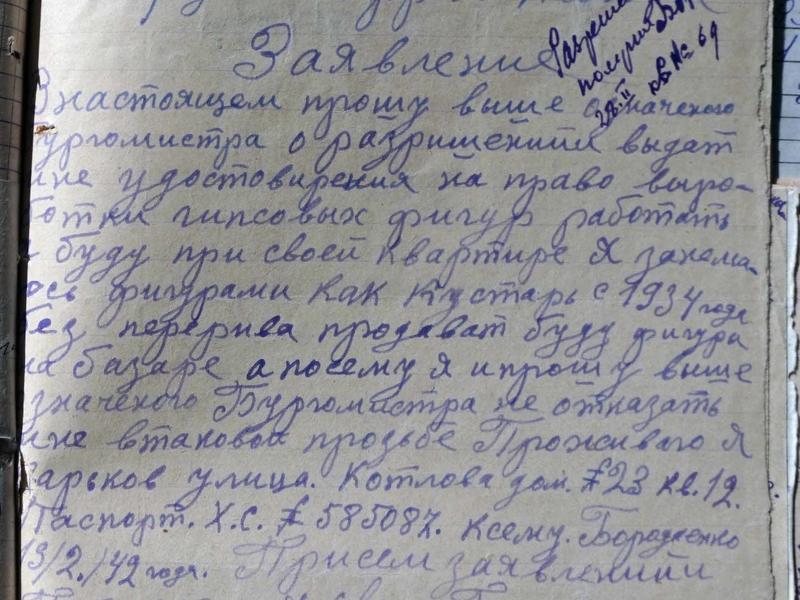 Заявление
Разреше
получил
28.II кв. № 69
В настоящем прошу выше означеного
Бургомистра о разришениии выдат
мне удостовирения на право выро-
ботки гипсовых фигур работать
я буду при своей квартире Я занема-
юсь фигурами как кустарь с 1934 года
без перерива продават буду фигура
на базаре а посему я и прошу выше
означеного Бургомистра не отказать
мне втаковой прозьбе Проживаю Я
Харьков улица. Котлова дом. № 23 кв. 12.
Паспорт. Х.С. № 585087. Ксему. Бородиенко
13/2./42 года. Присем заявлениии